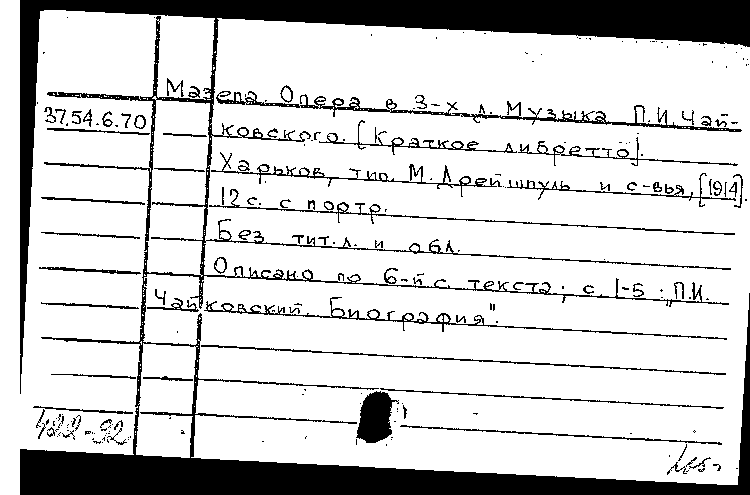 Мазепа. Опера в 3-х д. Музыка П.И.Чай-
37.54.6.70
ковского. [Краткое либретто].
Харьков, тип. М.Дрейшпуль и с-вья, [1914].
12 с. с портр.
Без тит.л. и обл.
Описано по 6-й с. текста; с. 1-5: „П.И.
Чайковский. Биография".
422-92